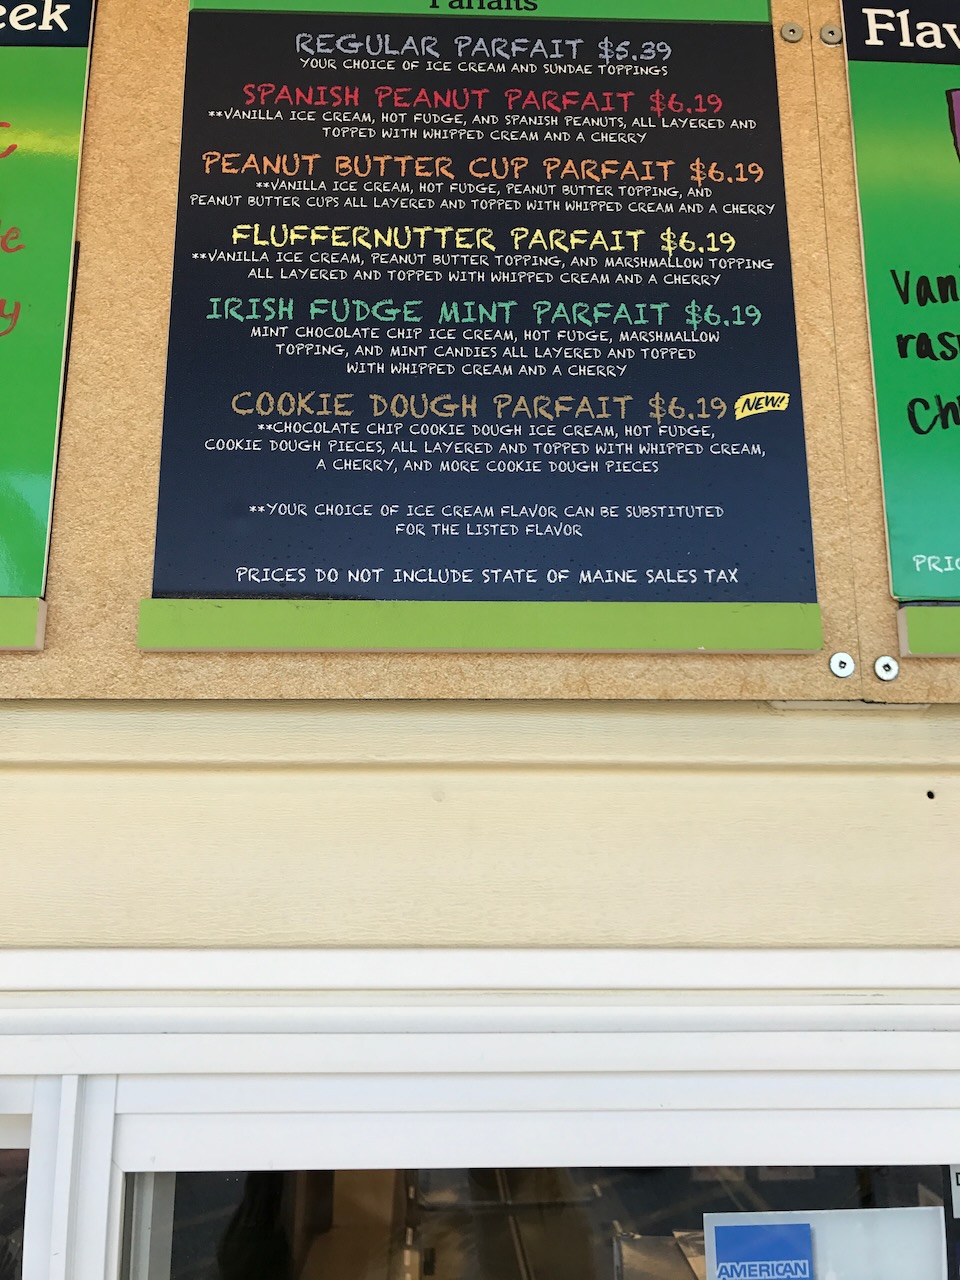 eek
Parfaits
REGULAR PARFAIT $5.39
YOUR CHOICE OF ICE CREAM AND SUNDAE TOPPINGS
SPANISH PEANUT PARFAIT $6.19
**VANILLA ICE CREAM, HOT FUDGE, AND SPANISH PEANUTS, ALL LAYERED AND
TOPPED WITH WHIPPED CREAM AND A CHERRY
PEANUT BUTTER CUP PARFAIT $6.19
**VANILLA ICE CREAM, HOT FUDGE, PEANUT BUTTER TOPPING, AND
PEANUT BUTTER CUPS ALL LAYERED AND TOPPED WITH WHIPPED CREAM AND A CHERRY
FLUFFERNUTTER PARFAIT $6.19
**VANILLA ICE CREAM, PEANUT BUTTER TOPPING, AND MARSHMALLOW TOPPING
ALL LAYERED AND TOPPED WITH WHIPPED CREAM AND A CHERRY
IRISH FUDGE MINT PARFAIT $6.19
MINT CHOCOLATE CHIP ICE CREAM, HOT FUDGE, MARSHMALLOW
TOPPING, AND MINT CANDIES ALL LAYERED AND TOPPED
WITH WHIPPED CREAM AND A CHERRY
COOKIE DOUGH PARFAIT $6.19 NEW!
**CHOCOLATE CHIP COOKIE DOUGH ICE CREAM, HOT FUDGE,
COOKIE DOUGH PIECES, ALL LAYERED AND TOPPED WITH WHIPPED CREAM,
A CHERRY, AND MORE COOKIE DOUGH PIECES
**YOUR CHOICE OF ICE CREAM FLAVOR CAN BE SUBSTITUTED
FOR THE LISTED FLAVOR
PRICES DO NOT INCLUDE STATE OF MAINE SALES TAX
Flav
Van
ras
Ch
PRIC
AMERICAN